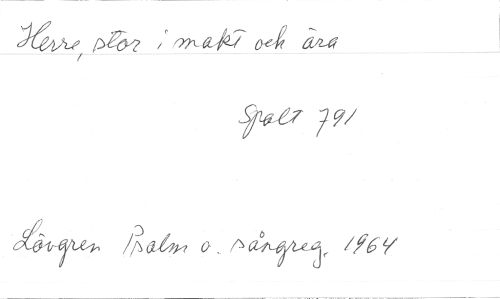 Herre, stor i makt och ära
Spalt 791
Lövgren Psalm o. sångreg. 1964